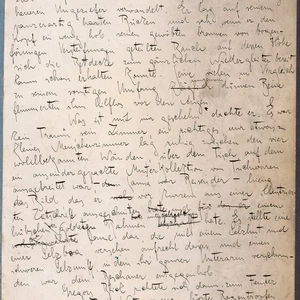 heuren Ungeziefer verwandelt. Er lag auf seinem
panzerartig harten Rücken und sah, wenn er den
Kopf ein wenig hob, seinen gewölbten, braunen von bogen-
förmigen Versteifungen geteilten Bauch auf dessen Höhe
sich die Bettdecke zum gänzlichen Niedergleiten bereit
kaum noch erhalten konnte. Seine vielen im Vergleich
zu seinem sonstigen Umfang dünnen Beine
flimmerten ihm hilflos vor den Augen.
Was ist mit mir geschehen? dachte er. Es war
kein Traum, sein Zimmer, ein richtiges nur etwas zu
kleines Menschenzimmer lag ruhig zwischen den vier
wohlbekannten Wänden, über dem Tisch auf dem
auseinandergepackte Musterkollektion von Tuchwaren
ausgebreitet war – Samsa war Reisender – hieng
das Bild, das er vor kurzem aus einer illustrier-
ten Zeitschrift ausgeschnitten
Rahmen hatte. Es stellte eine
Dame dar, die mit einem Pelzhut und
einer Pelzboa versehen aufrecht dasaß und einen
schweren Pelzmuff in dem ihr ganzer Unterarm verschwun-
den war dem Beschauer entgegenhob.
Gregors Blick richtete sich dann zum Fenster
hörte Regentropfen